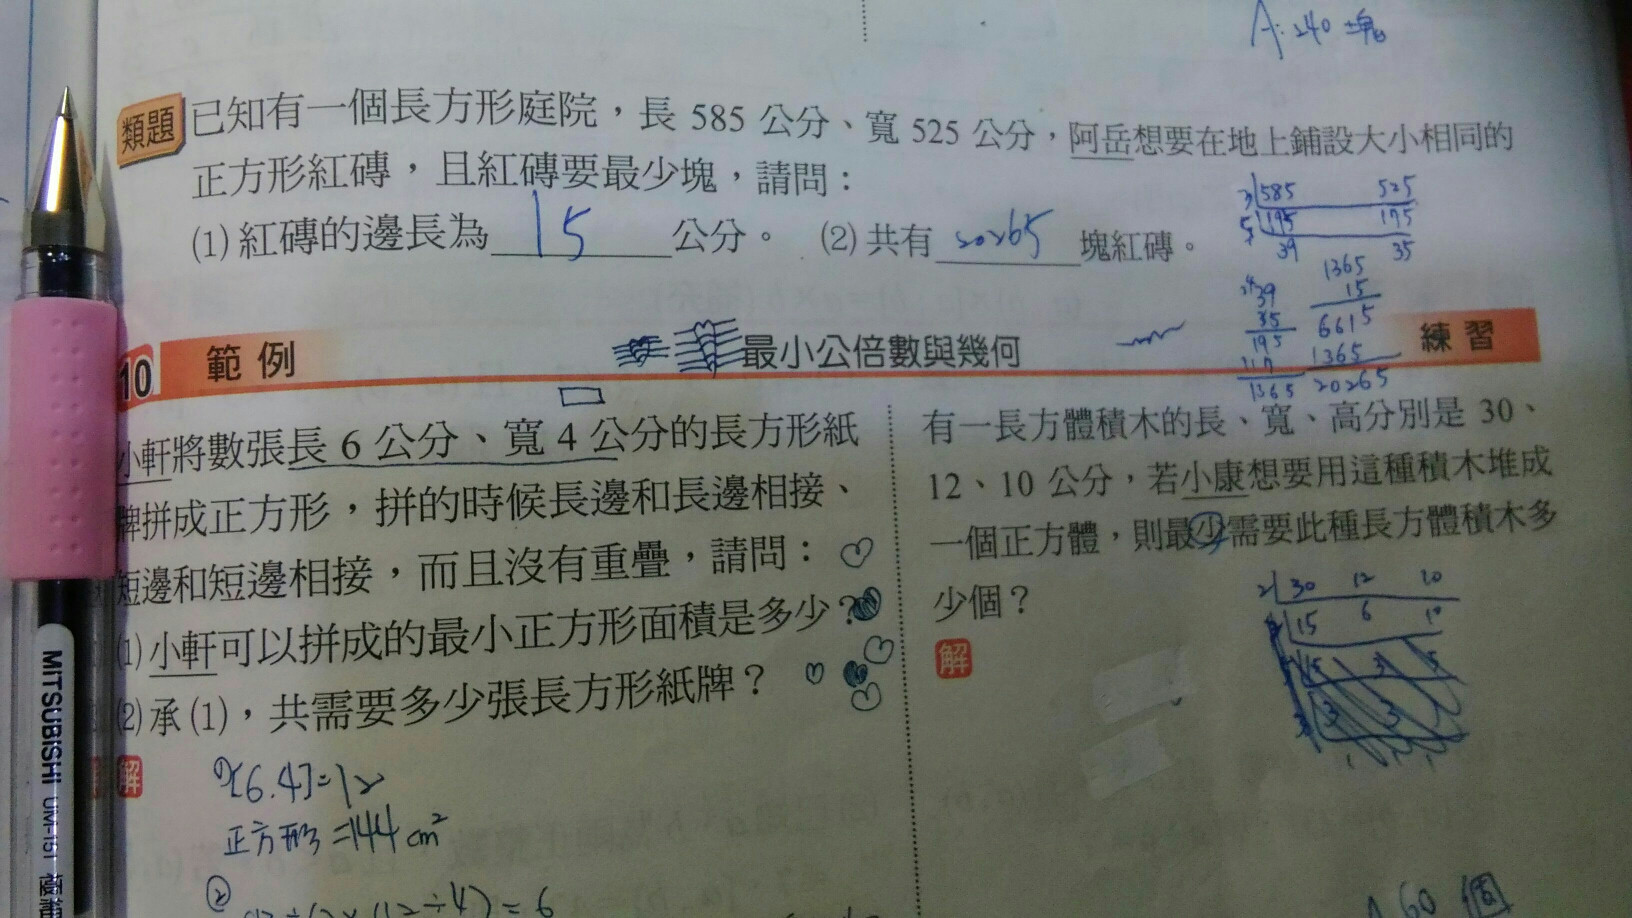 A:240塊
類題 已知有一個長方形庭院，長 585 公分、寬 525 公分，阿岳想要在地上鋪設大小相同的
正方形紅磚，且紅磚要最少塊，請問：
(1) 紅磚的邊長為 15 公分。 (2) 共有 20265 塊紅磚。
3 585 525
5 195 175
39 35
39
35
195
117
1365
1365
15
6615
1365
20265
10 範例 最小公倍數與幾何 練習
小軒將數張長 6 公分、寬 4 公分的長方形紙
牌拼成正方形，拼的時候長邊和長邊相接、
短邊和短邊相接，而且沒有重疊，請問：
(1) 小軒可以拼成的最小正方形面積是多少？
(2) 承 (1)，共需要多少張長方形紙牌？
解
[6.4]=12
正方形=144 cm²
②
(12÷4)=6
有一長方體積木的長、寬、高分別是 30、
12、10 公分，若小康想要用這種積木堆成
一個正方體，則最少需要此種長方體積木多
少個？
解
2 30 12 10
15 6
15 3 5
3 3
A 60 個
MITSUBISHI UM-151